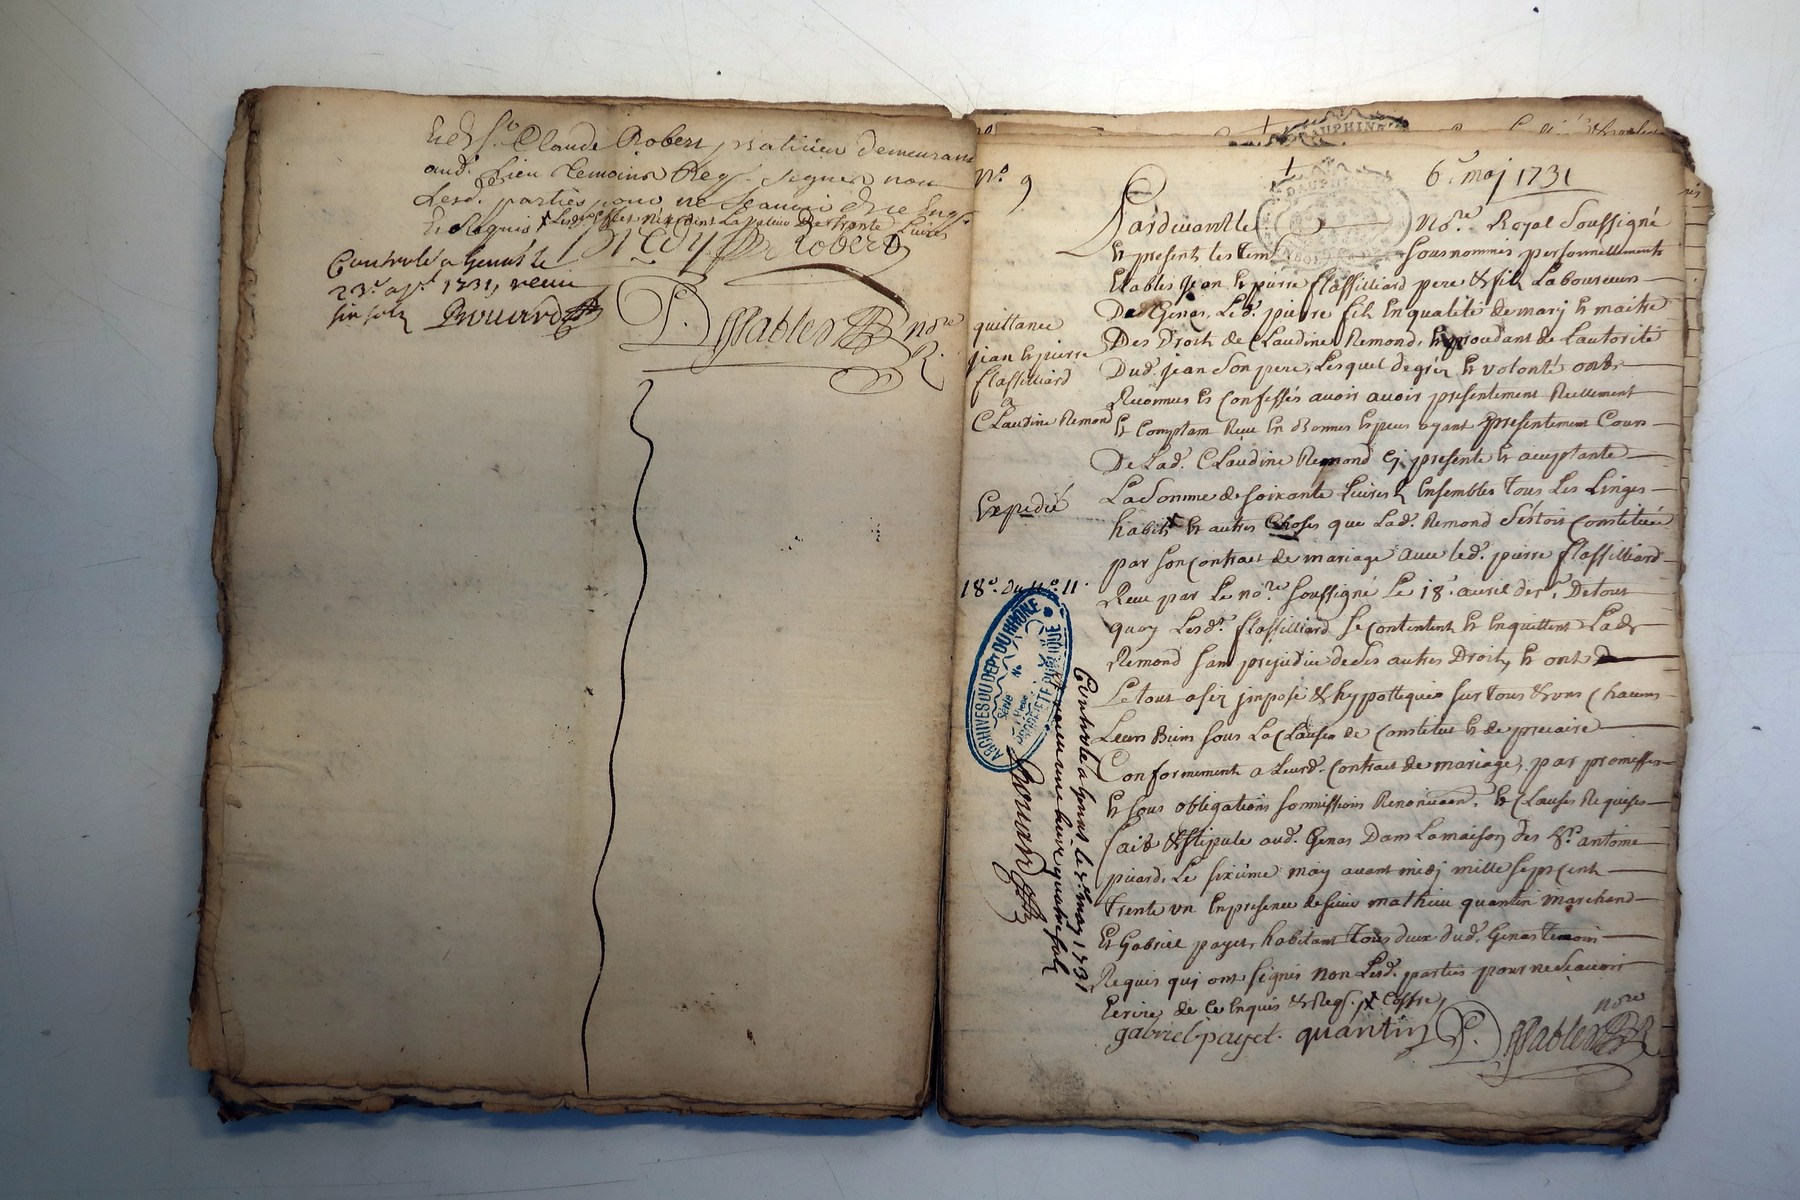 et Sr. Claude Robert praticien demeurant
aud. Lieu temoins Req. signes non
Lesd. parties pour ne scavoir de ce Enq.
et Requis x Lesd. effets de La valeur De trente Livres
Robert
Controlé a Genas le
23e. a 1731, recu
six sols Bouvard
P. Dessablex nore
R.
DAUPHINE
No. 9
6e. may 1731
Pardevant Le nore. Royal soussigné
Et present les tem sousnommés personnellement
Etablis jean Et pierre flassilliard pere & fils Laboureurs
De Genas, Led. pierre fils En qualité de mary Et maitre
Des Droits de Claudine Remond, Et procedant de L'autorité
Dud. jean Son pere, Lesquels de gré Et volonté ont
Reconnus Et Confessés avoir avoir presentement Reellement
Et Comptant Receu En Bonnes Especes ayant presentement Cours
De Lad. Claudine Remond cy presente Et acceptante
La Somme de soixante Livres Ensembles Tous Les Linges
habits x Et autres Choses que Lad. Remond s'étoit Constituée
par son Contract de mariage avec led. pierre flassilliard
Receu par Le nore. soussigné Le 18e. avril der. De tout
quoy Lesd. flassilliard se Contentent Et En quittent Lad.
Remond sans prejudice de ses autres Droits, Et ont
Le tout assis imposé & hypottequé sur Tous & uns Chacuns
Leurs Biens sous La Clause de Constitut Et de precaire
Conformement a Leurd. Contract de mariage, par promesses
Et sous obligations sommissions Renonciaon. Et Clauses Requises
fait & stipulé aud. Genas Dans La maison des Sr. antoine
picard, Le sixiéme may avant midi mille sept cent
trente un En presence de sieur mathieu quantin marchand
Et Gabriel payet, habitant Tous deux dud. Genas Temoins
Requis qui ont signés non Lesd. parties pour ne scavoir
Ecrire de ce Enquis & Reqs. x Coffre,
gabriel payet. quantin P. Dessablex nore R
quittance
jean Et pierre
flassilliard
a
Claudine Remond
Expedié
18e. du no. 11.
ARCHIVES DU DEPT DU RHONE
Série
No
PROPRIETE PUBLIQUE
Controlé a Genas le may 1731
Receu une livre quatre sols
Bouvard